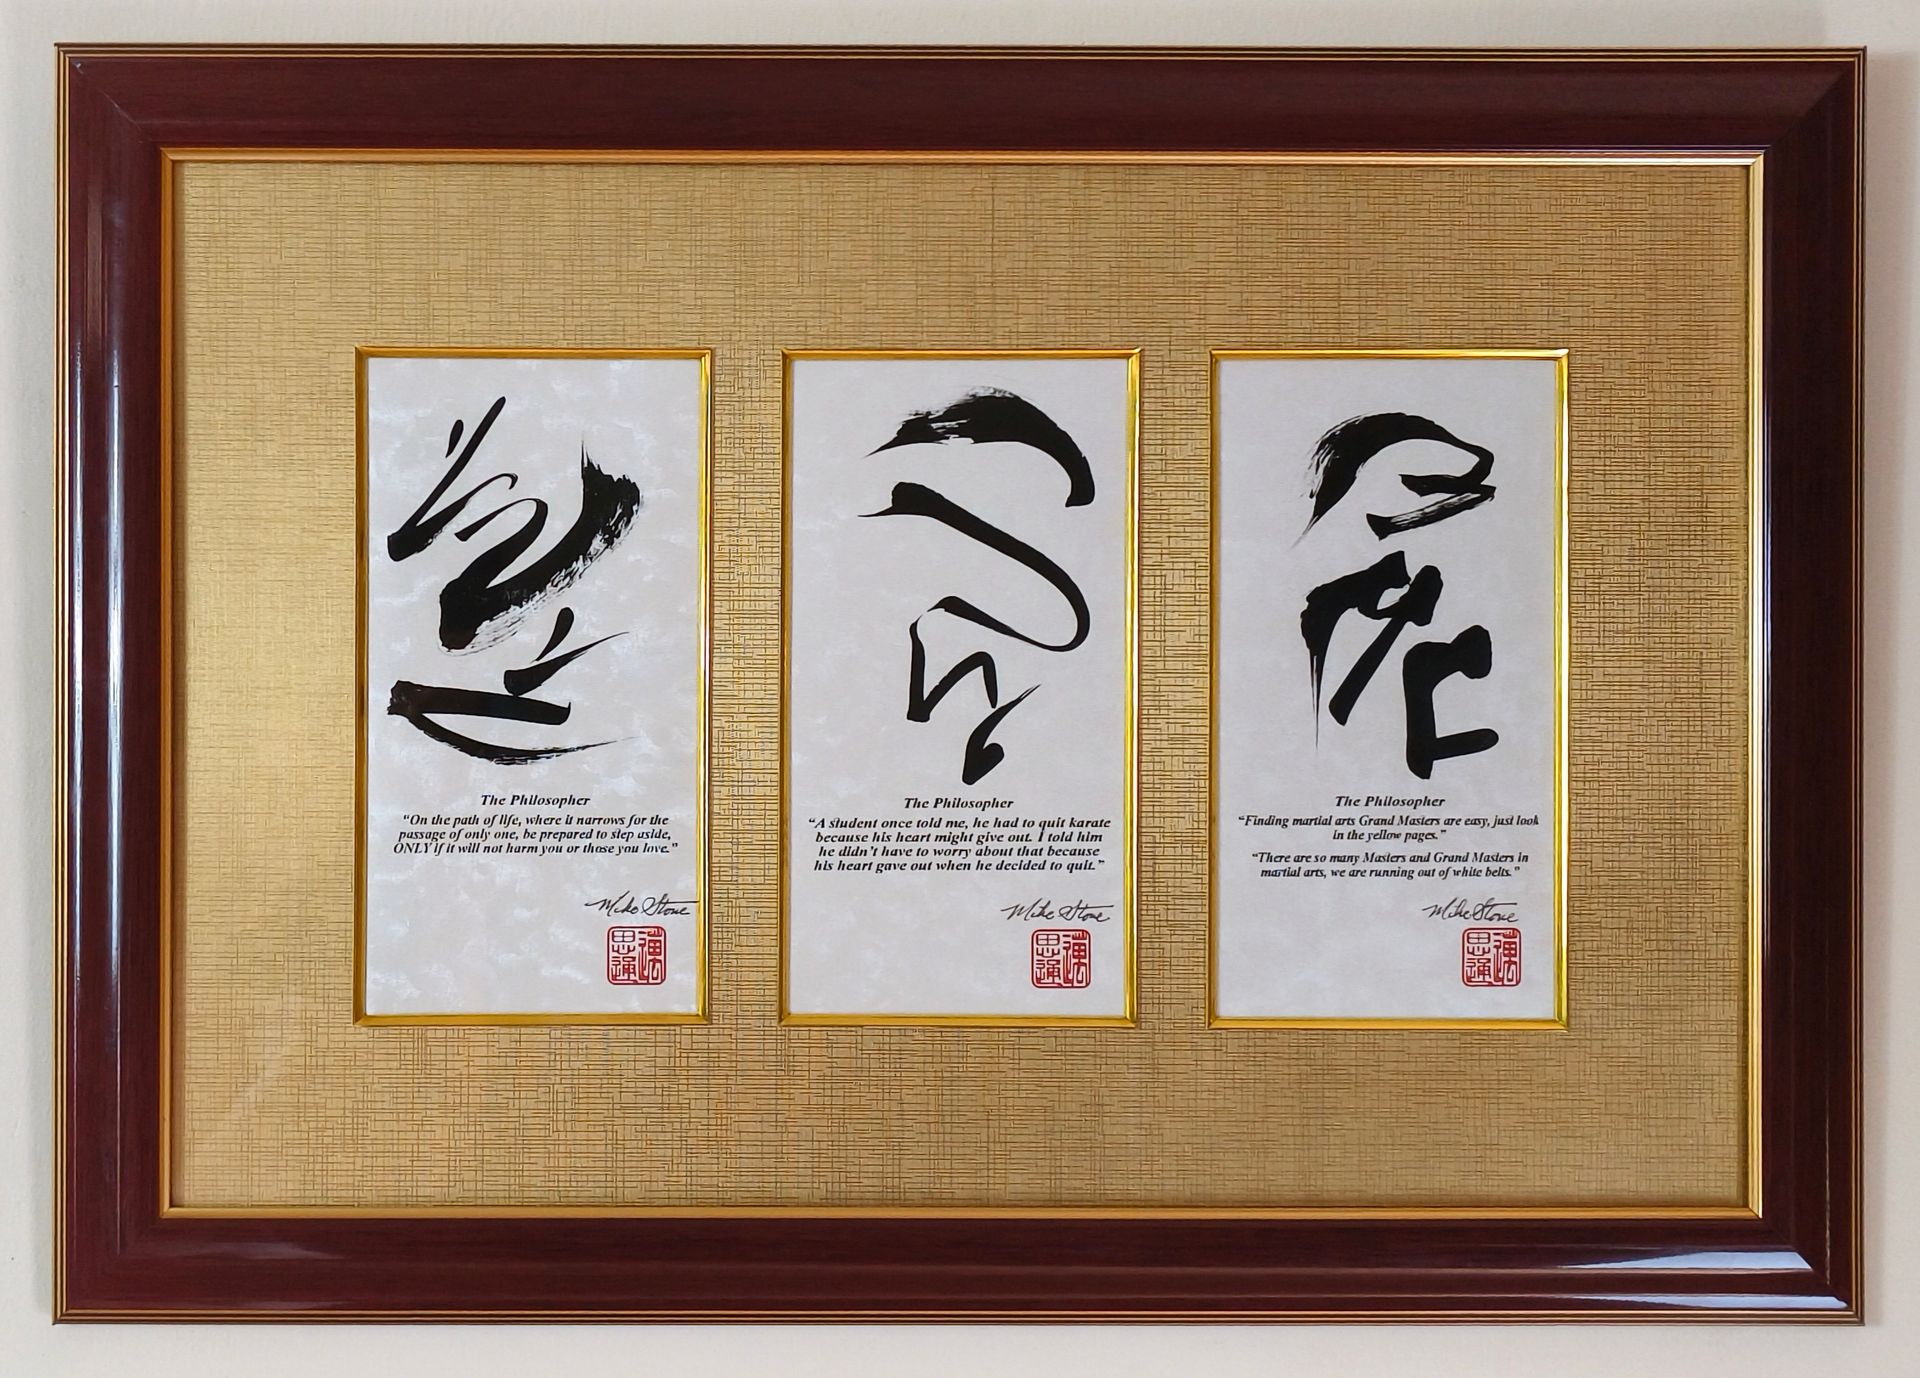 The Philosopher
“On the path of life, where it narrows for the
passage of only one, be prepared to step aside,
ONLY if it will not harm you or those you love.”
Mike Stone
The Philosopher
“A student once told me, he had to quit karate
because his heart might give out. I told him
he didn’t have to worry about that because
his heart gave out when he decided to quit.”
Mike Stone
The Philosopher
“Finding martial arts Grand Masters are easy, just look
in the yellow pages.”
“There are so many Masters and Grand Masters in
martial arts, we are running out of white belts.”
Mike Stone